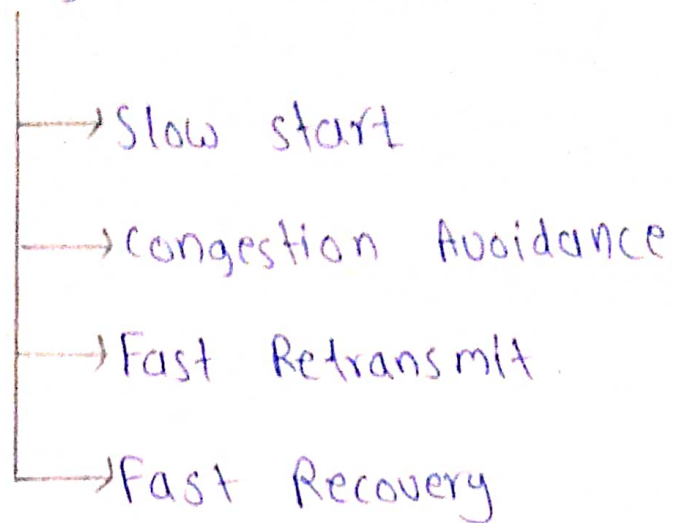 Slow start
Congestion Avoidance
Fast Retransmit
Fast Recovery